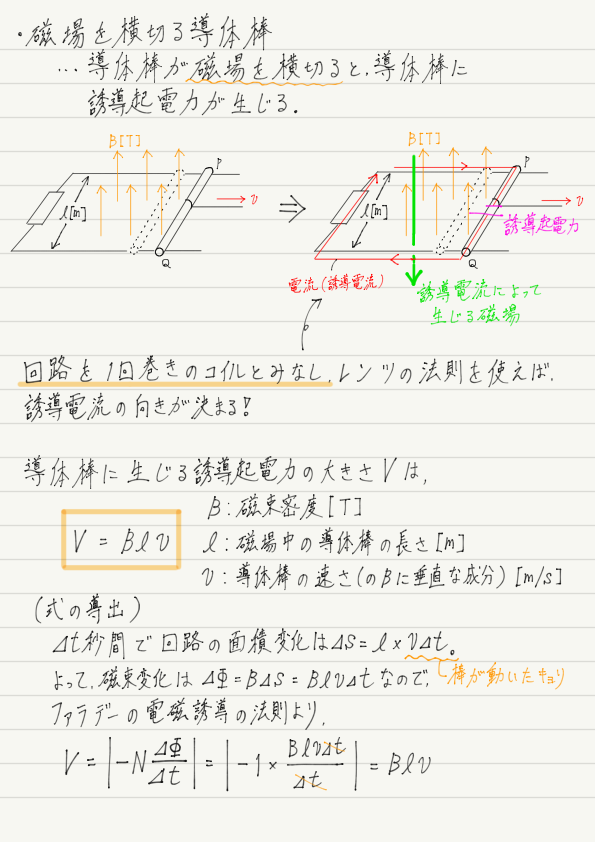 ・磁場を横切る導体棒
…導体棒が磁場を横切ると,導体棒に
誘導起電力が生じる.
B[T]
P
l[m]
v
Q
⇒
B[T]
P
l[m]
v
誘導起電力
Q
電流(誘導電流)
誘導電流によって
生じる磁場
回路を1回巻きのコイルとみなし,レンツの法則を使えば,
誘導電流の向きが決まる!
導体棒に生じる誘導起電力の大きさVは,
V = Blv
B:磁束密度[T]
l:磁場中の導体棒の長さ[m]
v:導体棒の速さ(のBに垂直な成分)[m/s]
(式の導出)
Δt秒間で回路の面積変化はΔS=l×vΔt。
よって,磁束変化はΔΦ=BΔS=BlvΔtなので,
棒が動いたキョリ
ファラデーの電磁誘導の法則より,
V = |-N ΔΦ/Δt| = |-1× BlvΔt/Δt| = Blv